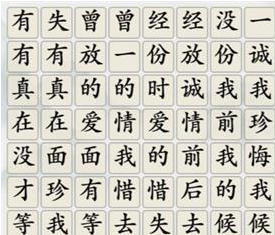 有失曾曾经经没一
有有放一份放份诚
真真的的时诚我我
在在爱情爱情前珍
没面面我的前我悔
才珍有惜惜后的我
等我等去失去候候